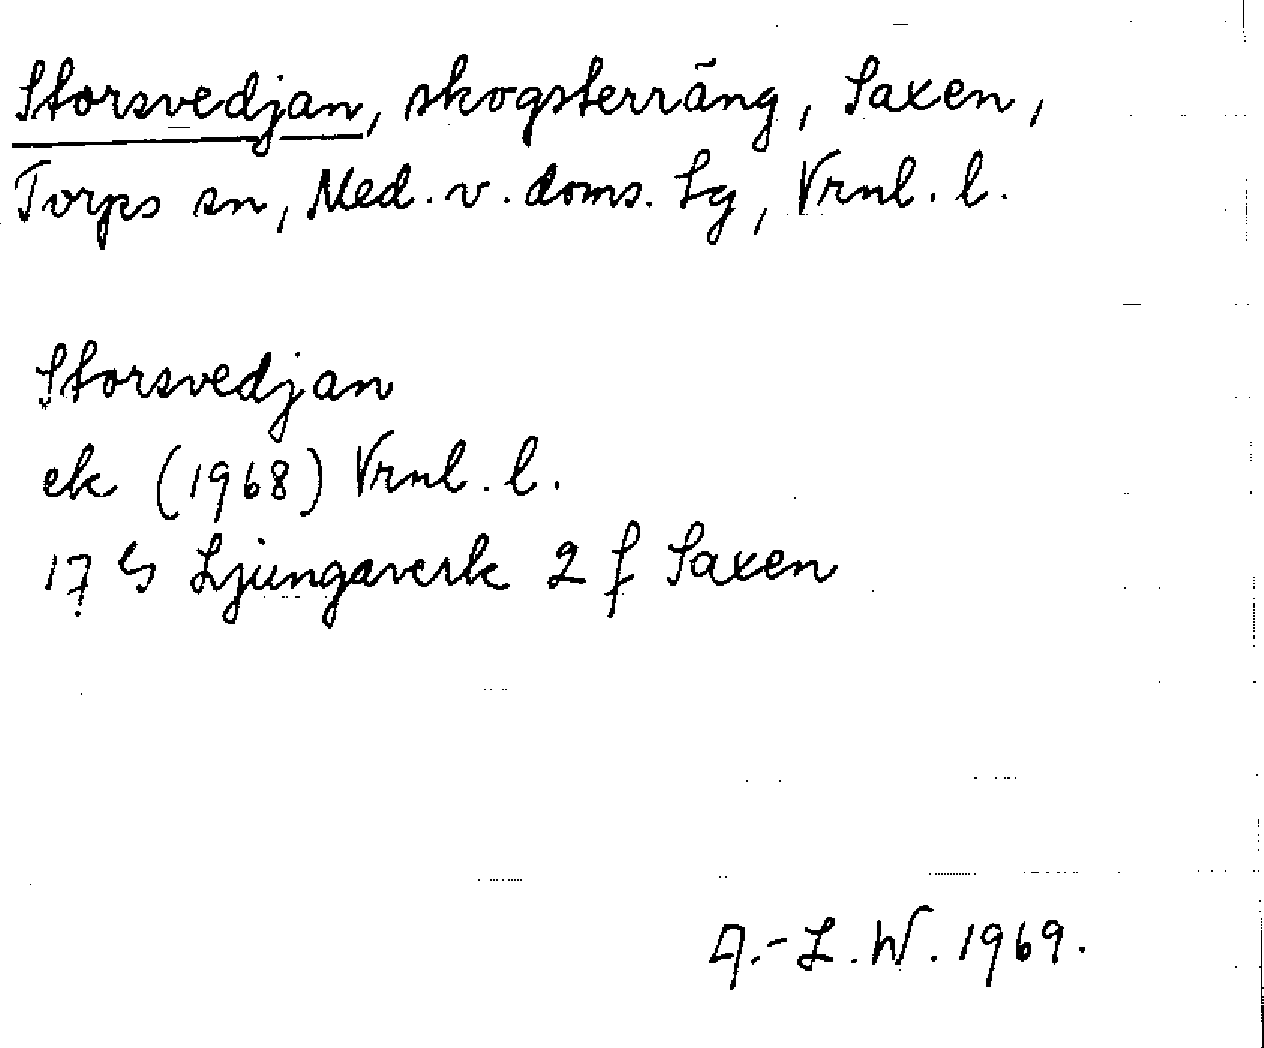 Storsvedjan, skogsterräng, Saxen,
Torps sn, Med. v. doms. Lg, Vrnl. l.
Storsvedjan
ek (1968) Vrnl. l.
17 G Ljungaverk 2 f Saxen
A.-L. W. 1969.